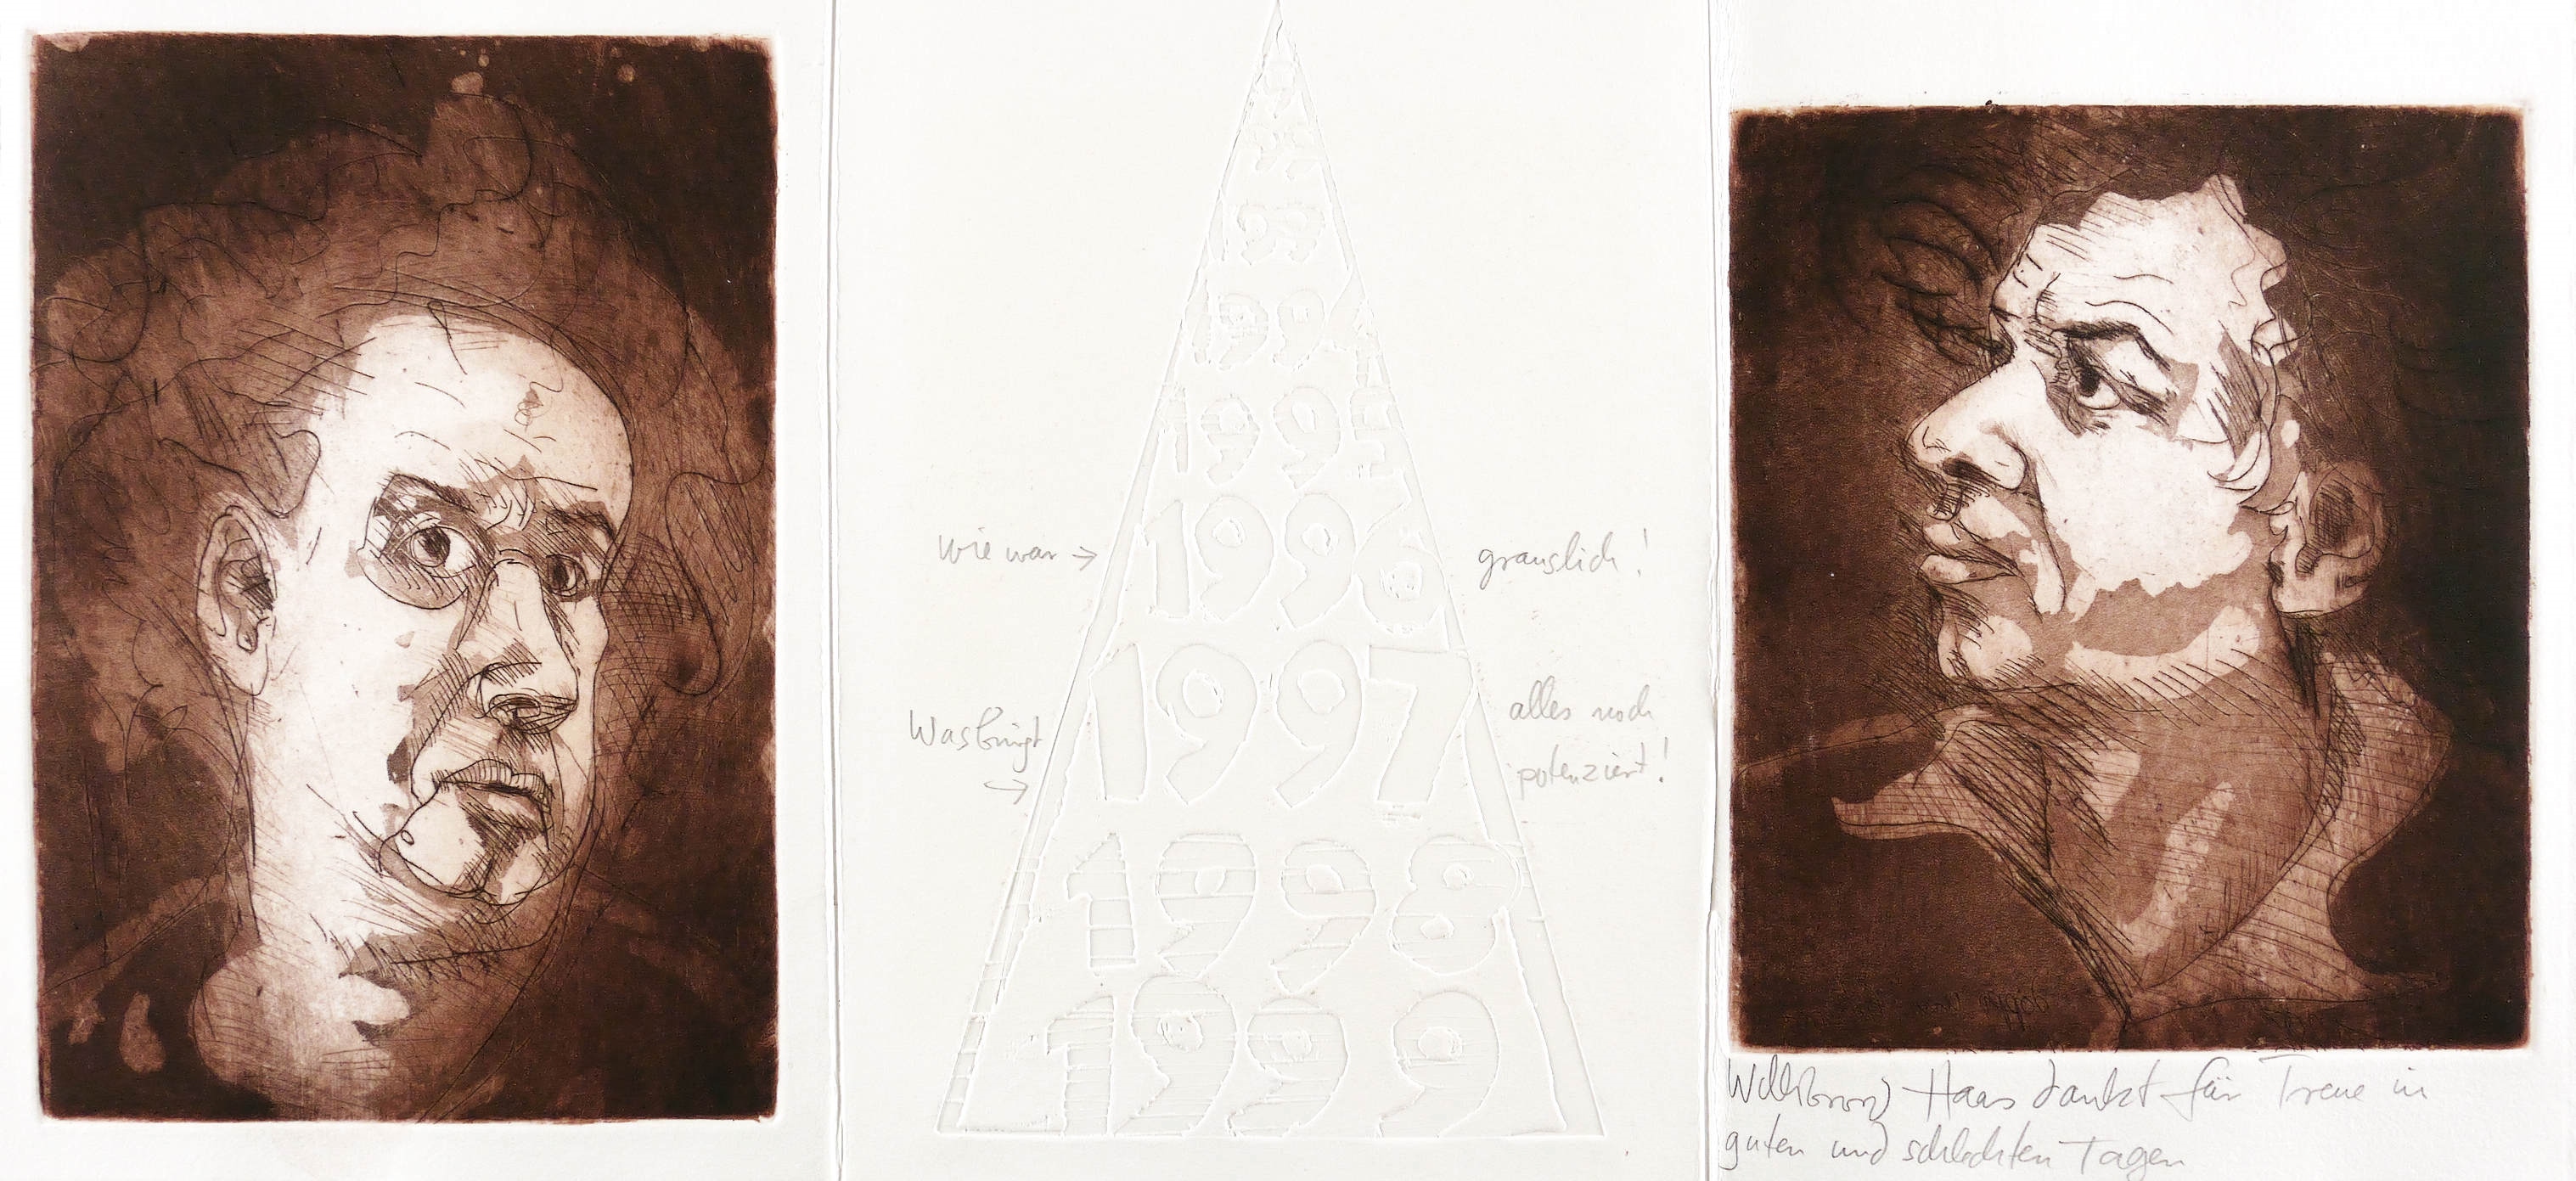 199
199
1995
wie war → 1996 grauslich!
Was bringt → 1997 alles noch
potenziert!
1998
1999
Willibrord Haas dankt für Treue in
guten und schlechten Tagen